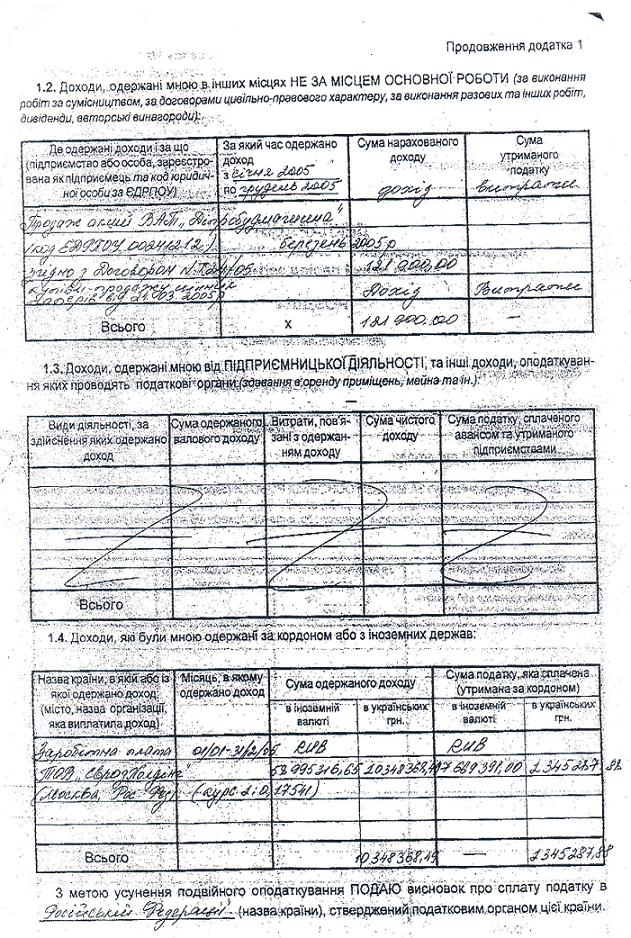 Продовження додатка 1
1.2. Доходи, одержані мною в інших місцях НЕ ЗА МІСЦЕМ ОСНОВНОЇ РОБОТИ (за виконання
робіт за сумісництвом, за договорами цивільно-правового характеру, за виконання разових та інших робіт,
дивіденди, авторські винагороди):
Де одержані доходи і за що (підприємство або особа, зареєстрована як підприємець та код юридичної особи за ЄДРПОУ)
За який час одержано доход з січня 2005 по грудень 2005
Сума нарахованого доходу дохід
Сума утриманого податку витрати
Продаж акцій ВАТ „Дніпробудмашина"
(код ЕДРПОУ 00241212) березень 2005 р
згідно з Договором 121 900,00
купівлі-продажу цінних Дохід Витрати
паперів від 21.03 2005р
Всього х 121 900.00 —
1.3. Доходи, одержані мною від ПІДПРИЄМНИЦЬКОЇ ДІЯЛЬНОСТІ, та інші доходи, оподаткуван-
ня яких проводять податкові органи (здавання в оренду приміщень, майна та ін.):
—
Види діяльності, за здійснення яких одержано доход
Сума одержаного валового доходу
Витрати, пов'язані з одержанням доходу
Сума чистого доходу
Сума податку, сплаченого авансом та утриманого підприємствами
Всього
1.4. Доходи, які були мною одержані за кордоном або з іноземних держав:
Назва країни, в якій або із якої одержано доход (місто, назва організації, яка виплатила доход)
Місяць, в якому одержано доход
Сума одержаного доходу
в іноземній валюті
в українських грн.
Сума податку, яка сплачена (утримана за кордоном)
в іноземній валюті
в українських грн.
Заробітна плата 01/01-31/12/05 RUB RUB
ТОВ „ЄвразХолдинг" 58 995 316,65 10348368,49 7 669 391,00 1 345 287,88
(Москва, Рос. Фед) (курс 1:0,17541)
Всього 10348368,49 — 1345287,88
З метою усунення подвійного оподаткування ПОДАЮ висновок про сплату податку в
Російській Федерації (назва країни), стверджений податковим органом цієї країни.